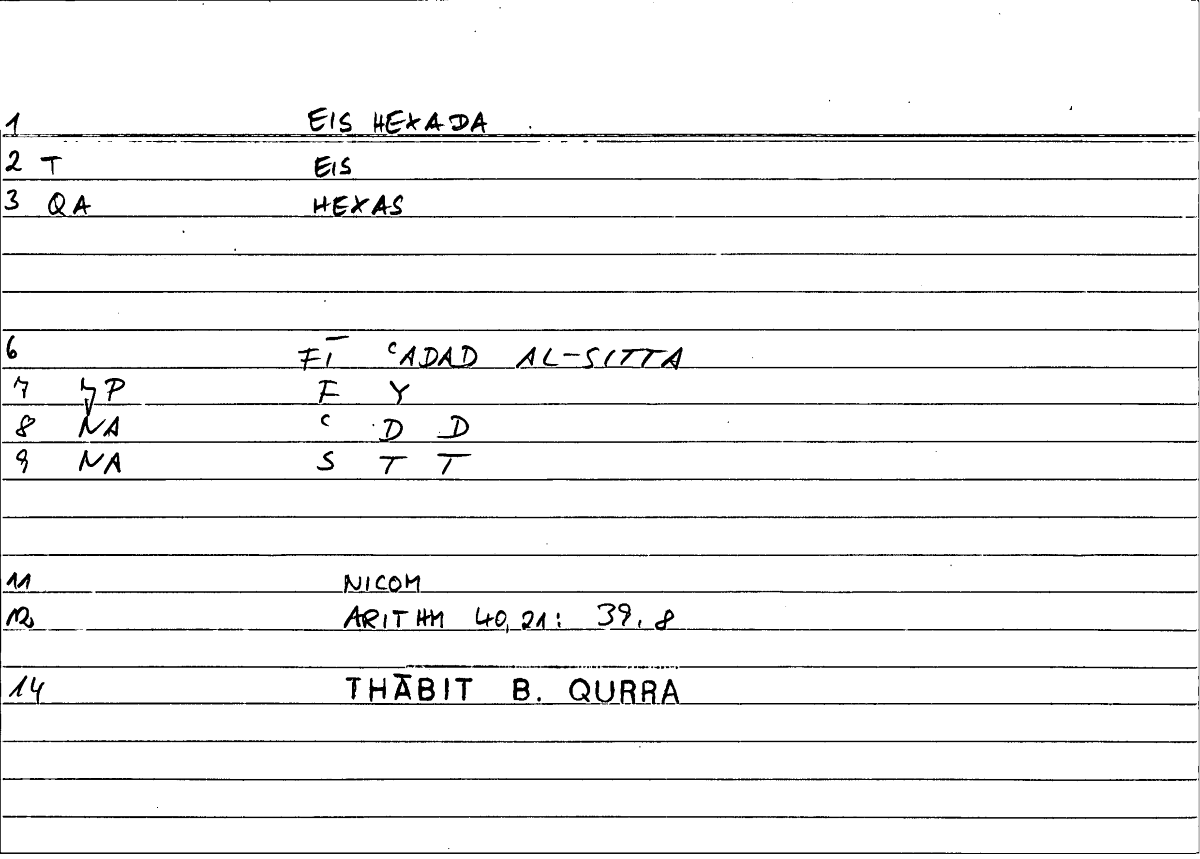 1 EIS HEXADA
2 T EIS
3 QA HEXAS
6 FĪ ʿADAD AL-SITTA
7 P F Y
8 NA ʿ D D
9 NA S T T
11 NICOM
12 ARITHM 40,21: 39,8
14 THĀBIT B. QURRA